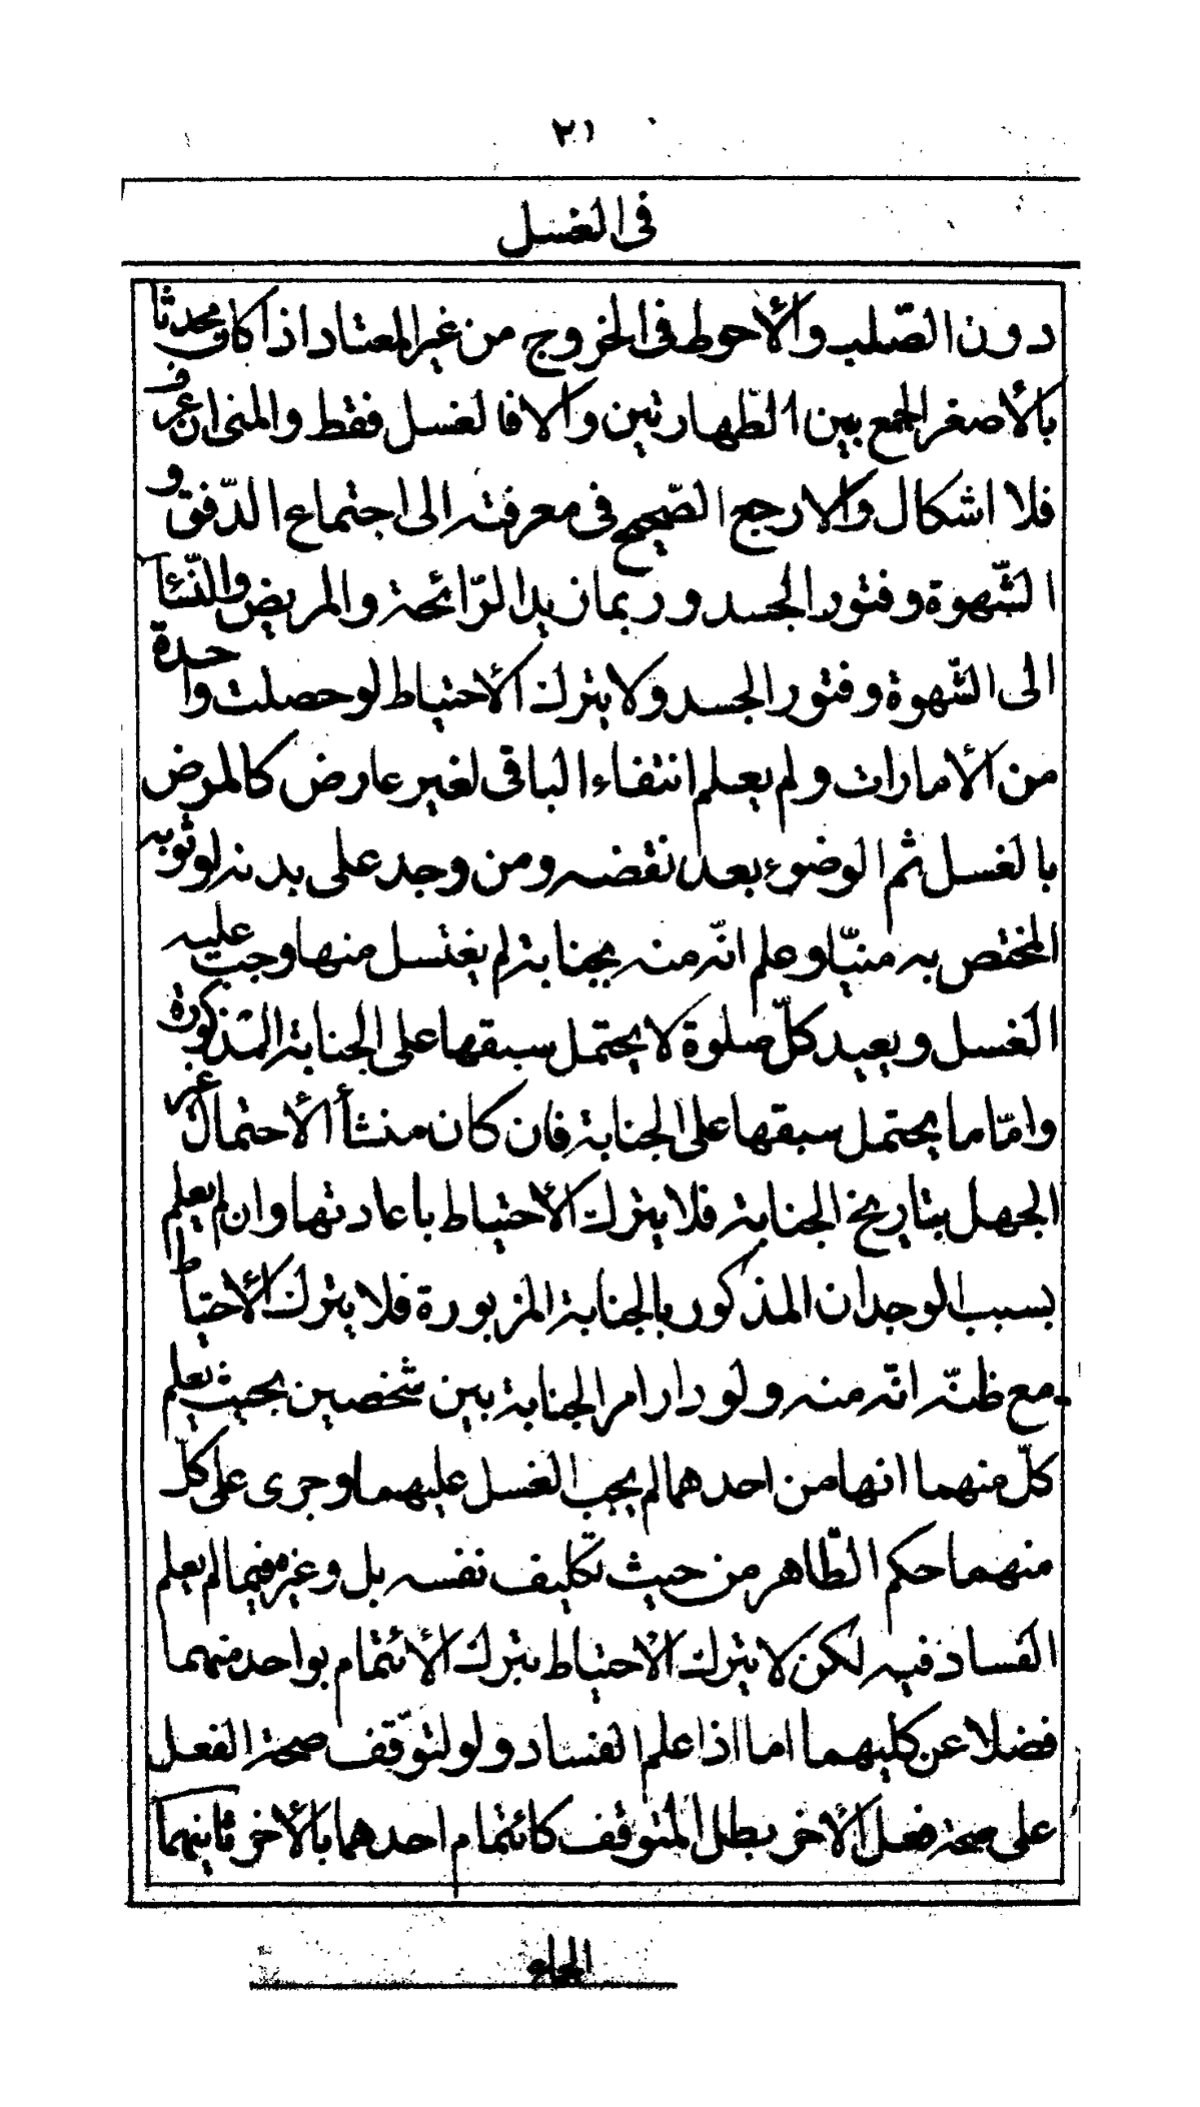 ٣١
فى الغسل
دون الصّلب والأحوط فى الخروج من غير المعتاد اذا كان محدثا
بالأصغر الجمع بين الطّهارتين والا فالغسل فقط والمنى ان عرف
فلا اشكال والا رجع الصّحيح فى معرفته الى اجتماع الدّفق و
الشّهوة وفتور الجسد وربما زيد الرّائحة والمريض والنّسآء
الى الشّهوة وفتور الجسد ولا يترك الأحتياط لو حصلت واحدة
من الأمارات ولم يعلم انتفاء الباقى لغير عارض كالمرض
بالغسل ثم الوضوء بعد نقضه ومن وجد على بدنه او ثوبه
المختص به منيّا وعلم انّه منه بجنابة لم يغتسل منها وجب عليه
الغسل ويعيد كلّ صلوة لا يحتمل سبقها على الجنابة المذكورة
وامّا ما يحتمل سبقها على الجنابة فان كان منشأ الأحتمال
الجهل بتاريخ الجنابة فلا يترك الأحتياط باعادتها وان لم يعلم
بسبب الوجدان المذكور بالجنابة المزبورة فلا يترك الأحتياط
مع ظنّه انّه منه ولو دار امر الجنابة بين شخصين بحيث يعلم
كلّ منهما انها من احدهما لم يجب الغسل عليهما وجرى على كلّ
منهما حكم الطّاهر من حيث تكليف نفسه بل وغيره فيما لم يعلم
الفساد فيه لكن لا يترك الأحتياط بترك الأئتمام بواحد منهما
فضلا عن كليهما اما اذا علم الفساد ولو لتوقّف صحة الفعل
على صحة فعل الأخر بطل المتوقف كائتمام احدهما بالأخر ثانيهما
الجماع